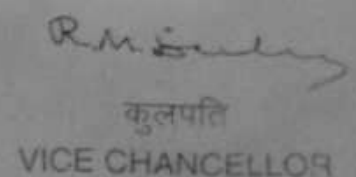 R.M.
कुलपति
VICE CHANCELLOR